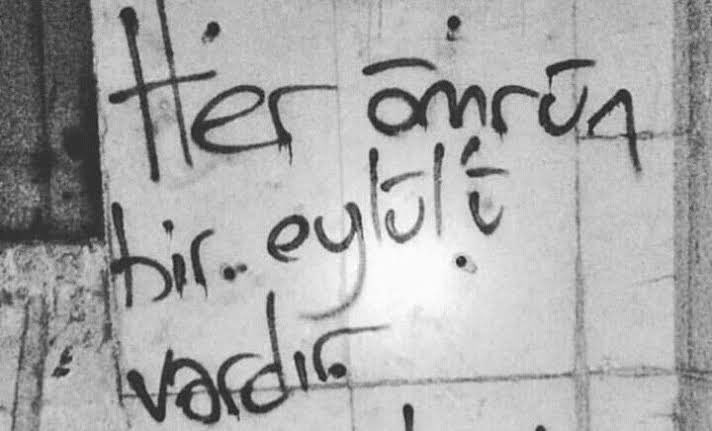 Her ömrün
bir.. eylül'ü
vardır.